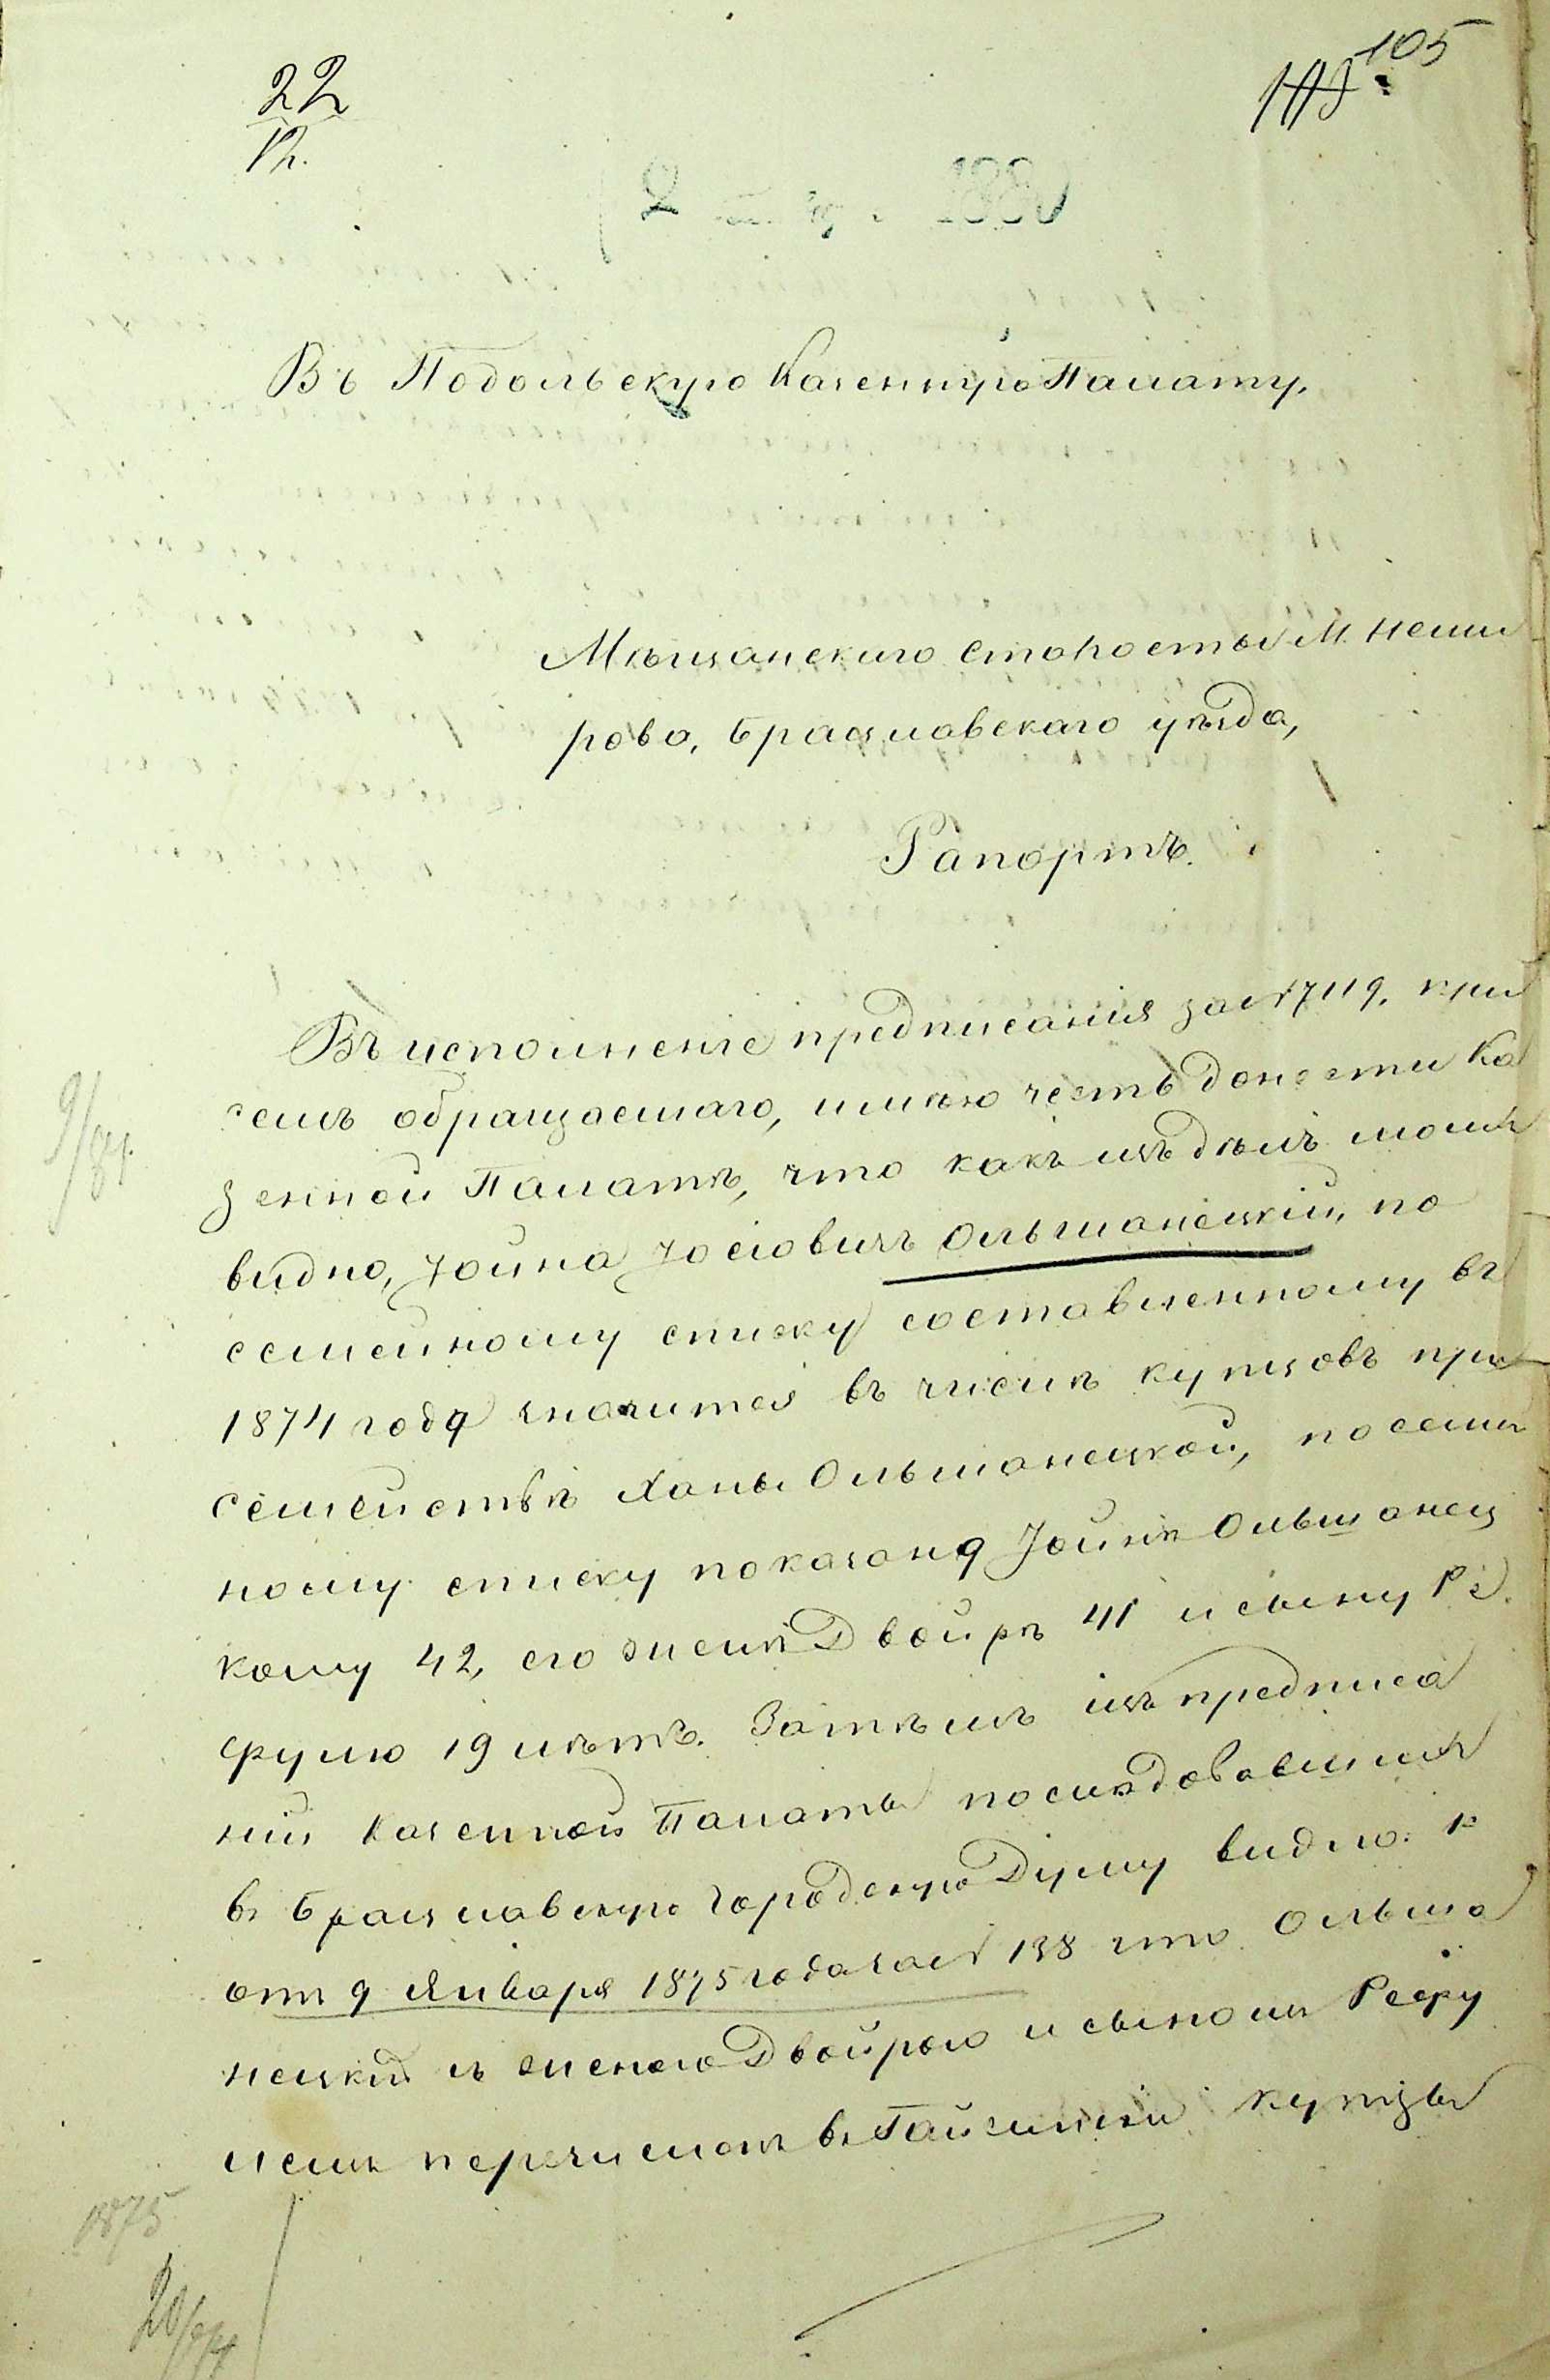 22
12.
105
2 1880
Въ Подольскую Казенную Палату,
Мѣщанскаго Старосты М. Неми
рова, Брацлавскаго уѣзда,
Рапортъ.
Въ исполненіе предписанія за № 7119, при
семъ обращаемаго, имѣю честь донести Ка
зенной Палатѣ, что какъ изъ дѣлъ моихъ
видно, Іойна Іосіовичъ Ольшанецкій, по
семейному списку составленному въ
1874 году значится въ числѣ купцовъ при
семействѣ Ханы Ольшанецкой, по семей
ному списку показано Іойнѣ Ольшанец
кому 42, его женѣ Двойрѣ 41 и сыну Ре
фулю 19 лѣтъ. Затѣмъ изъ предписа
ній Казенной Палаты послѣдовавшихъ
въ Брацлавскую Городскую Думу видно: 1е
отъ 9 Января 1875 года за № 138 что Ольша
нецкій съ женою Двойрою и сыномъ Рефу
лемъ перечисленъ въ Гайсинскіе купцы
9/81.
1875